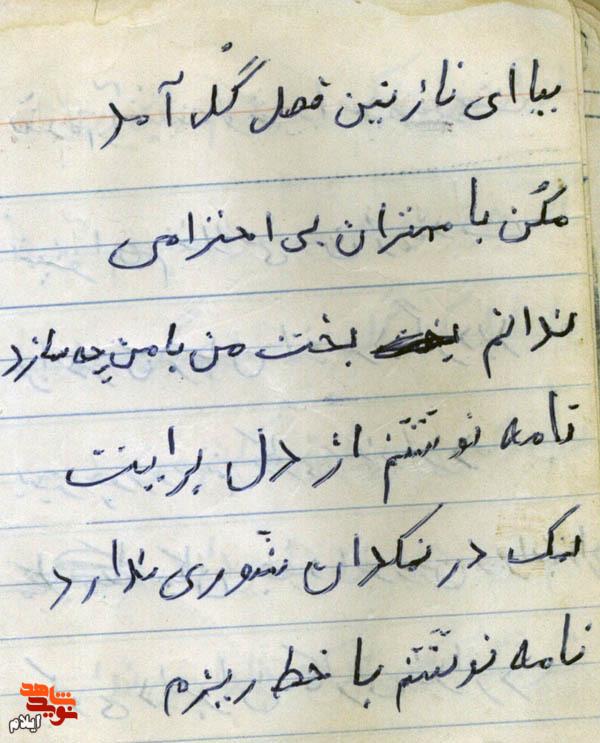 بیا ای نازنین فصل گل آمد
مکن با مهتران بی احترامی
ندانم بخت من با من چه سازد
نامه نوشتم از دل برایت
نمک در نمکدان شوری ندارد
نامه نوشتم با خط ریزم
نوید شاهد
ایلام